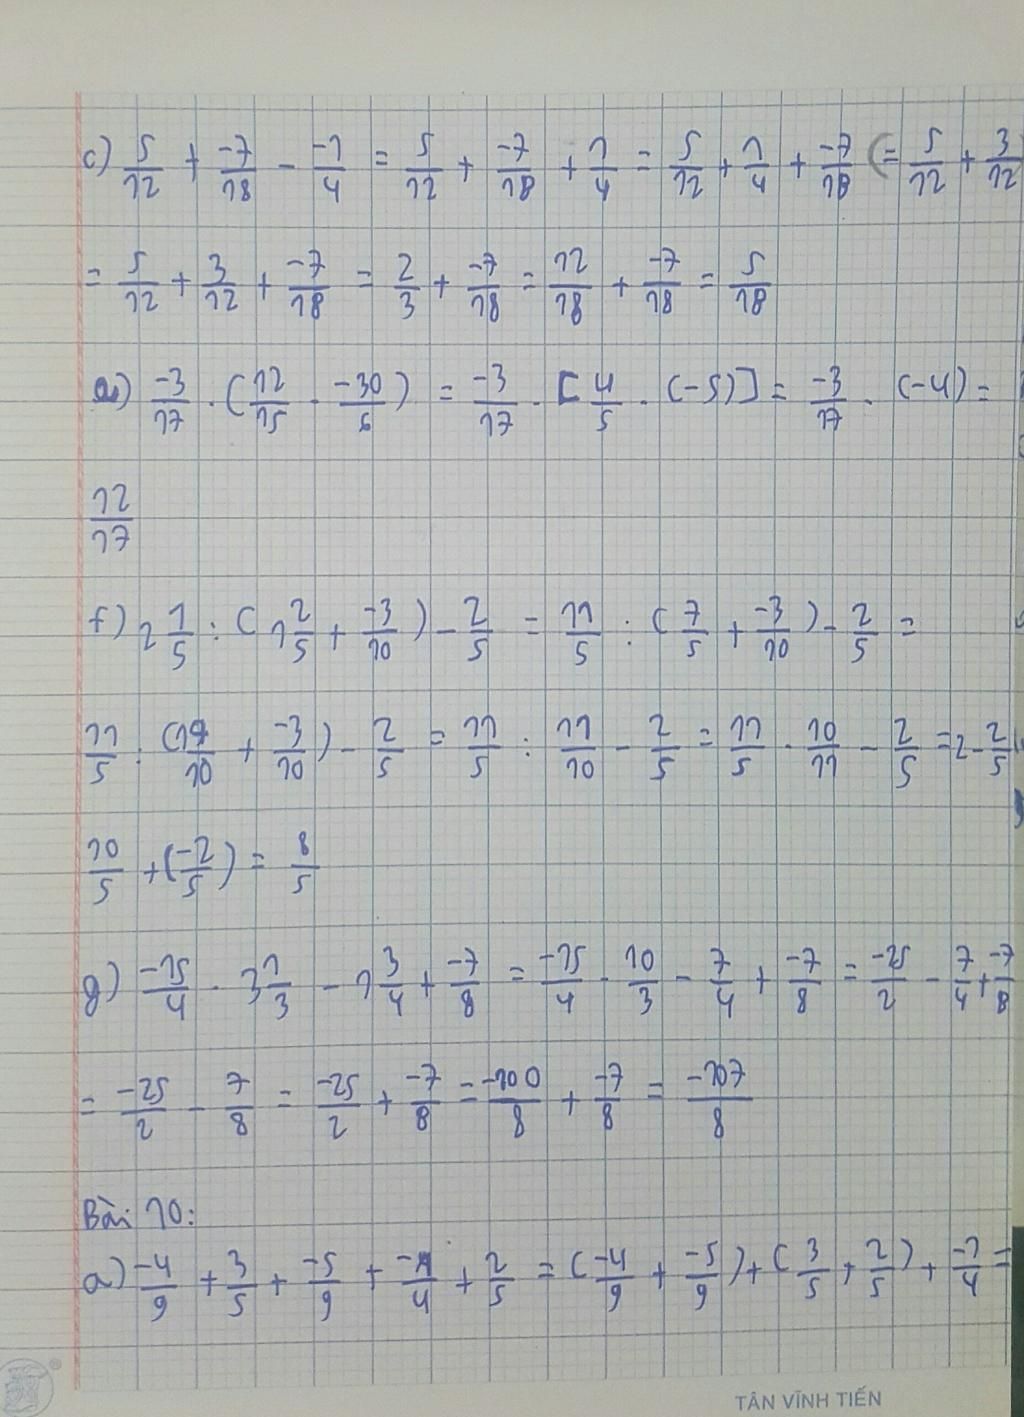 c) 5/12 + -7/18 - -1/4 = 5/12 + -7/18 + 1/4 = 5/12 + 1/4 + -7/18 (= 5/12 + 3/12
= 5/12 + 3/12 + -7/18 = 2/3 + -7/18 = 12/18 + -7/18 = 5/18
-3/17 . (12/15 . -30/6) = -3/17 . [4/5 . (-5)] = -3/17 . (-4) =
12/17
f) 2 1/5 : (1 2/5 + -3/10) - 2/5 = 11/5 : (7/5 + -3/10) - 2/5 =
11/5 : (14/10 + -3/10) - 2/5 = 11/5 : 11/10 - 2/5 = 11/5 . 10/11 - 2/5 = 2 - 2/5
10/5 + (-2/5) = 8/5
g) -15/4 . 3 1/3 - 1 3/4 + -7/8 = -15/4 . 10/3 - 7/4 + -7/8 = -25/2 - 7/4 + -7/8
= -25/2 - 7/8 = -25/2 + -7/8 = -100/8 + -7/8 = -107/8
Bài 10:
a) -4/9 + 3/5 + -5/9 + -1/4 + 2/5 = (-4/9 + -5/9) + (3/5 + 2/5) + -1/4 =
TÂN VĨNH TIẾN